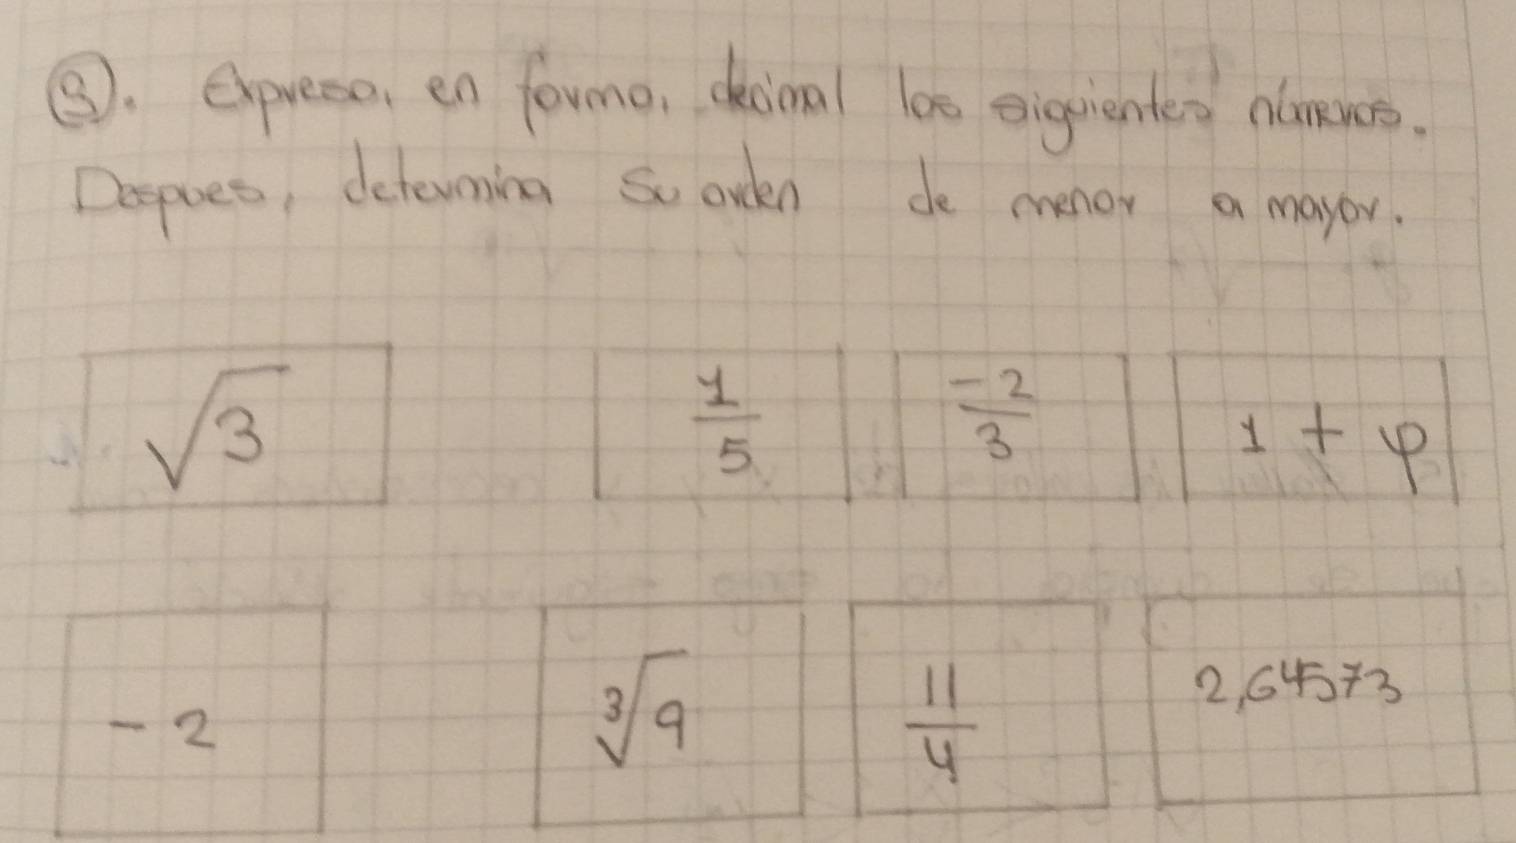 ③. Expresa, en forma, decimal los siguientes números.
Despues, determina su orden de menor a mayor.
√3 1/5 -2/3 1 + φ
-2 ∛9 11/4 2,64573